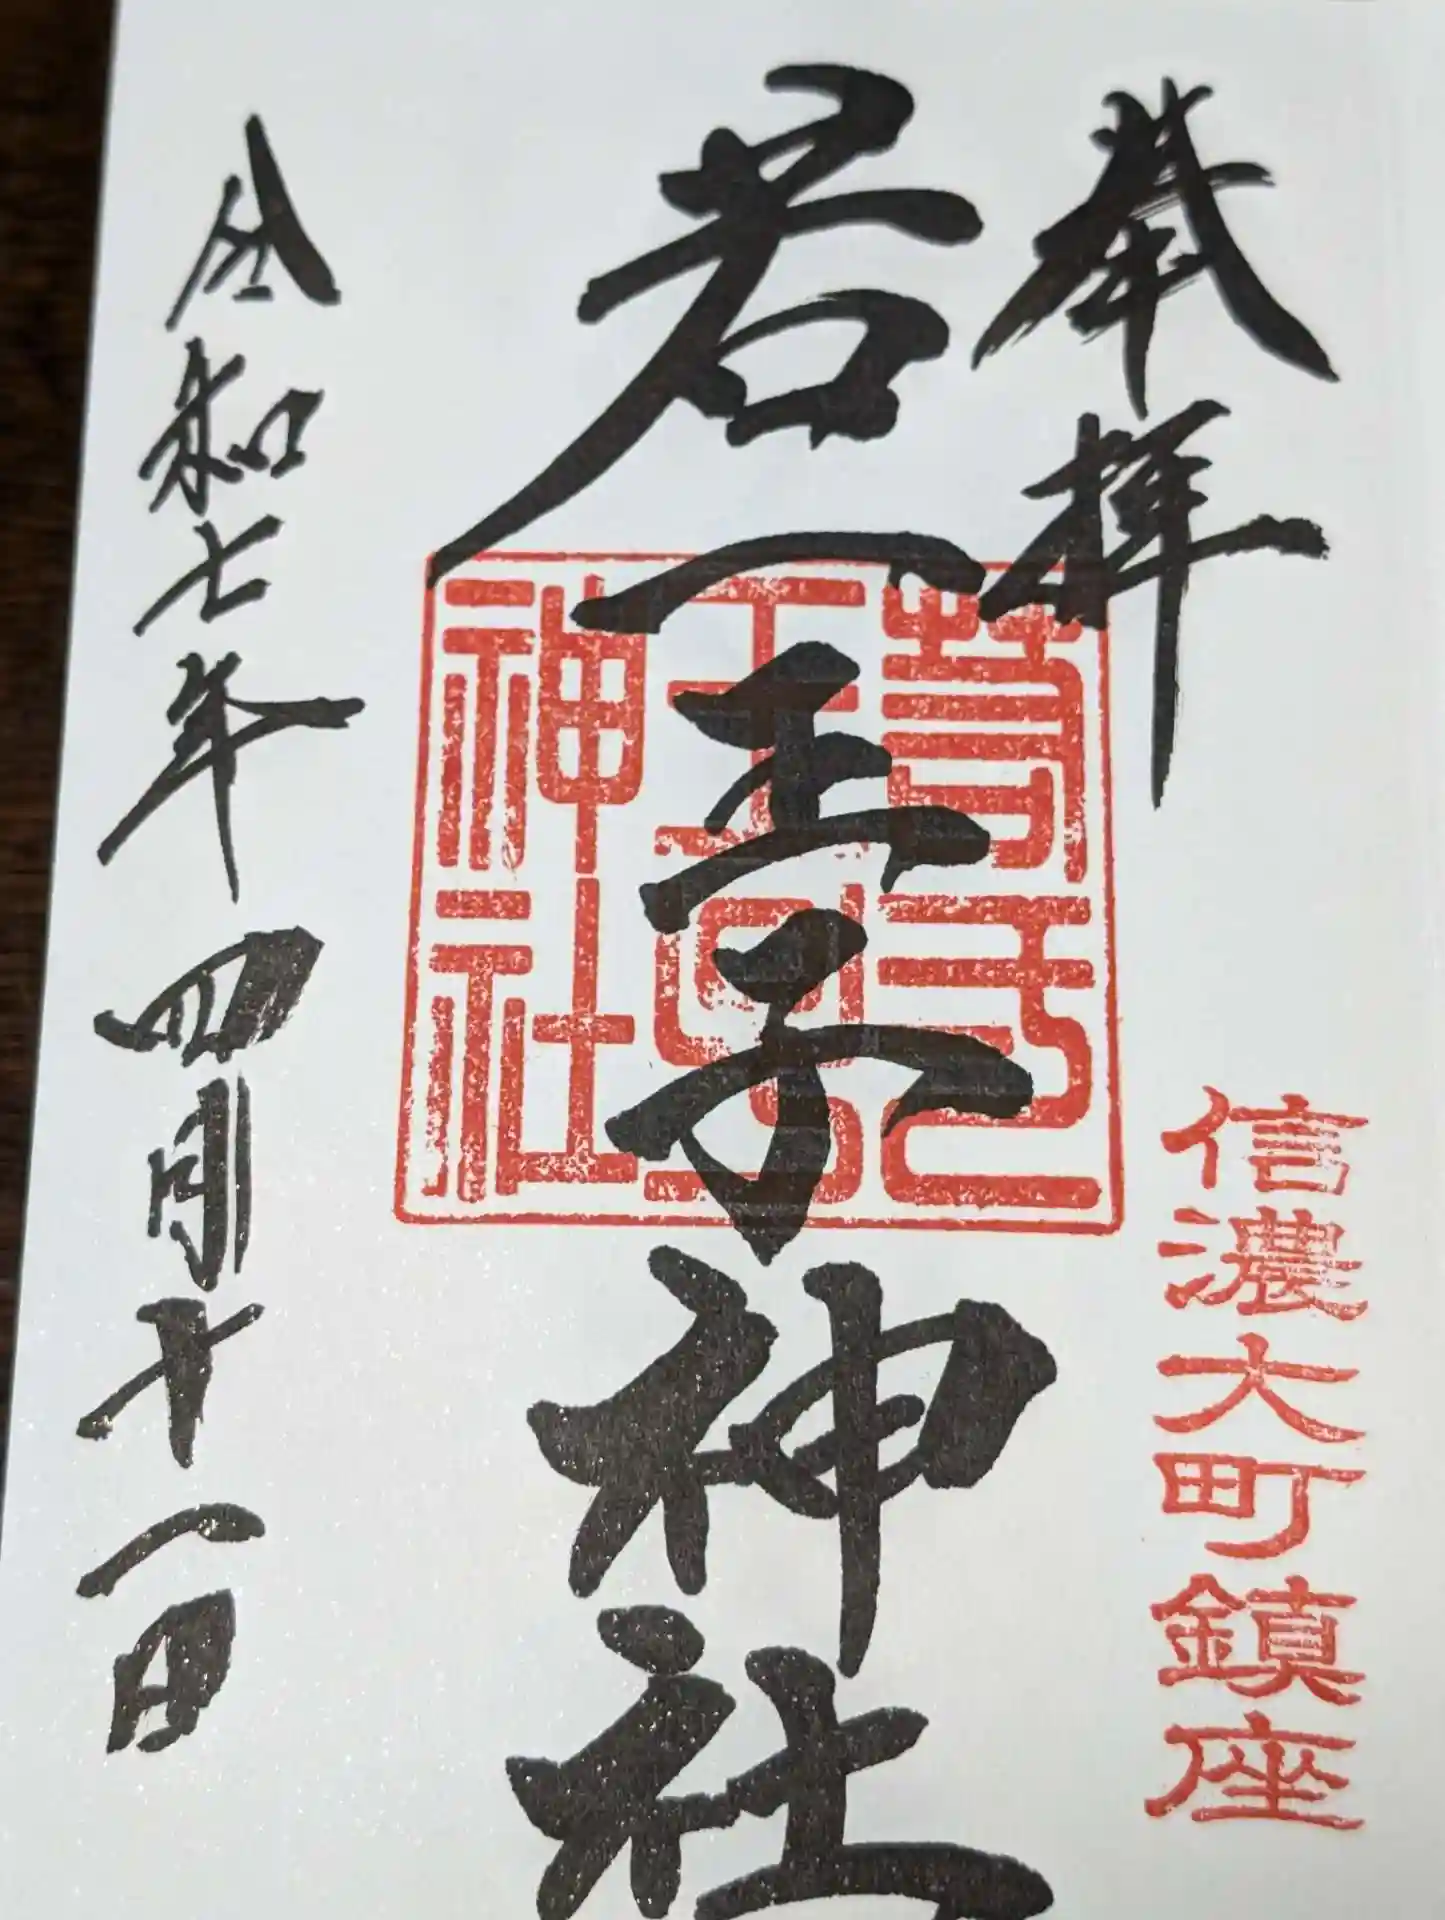 奉拝
信濃大町鎮座
若一王子神社
神社
令和七年四月十一日